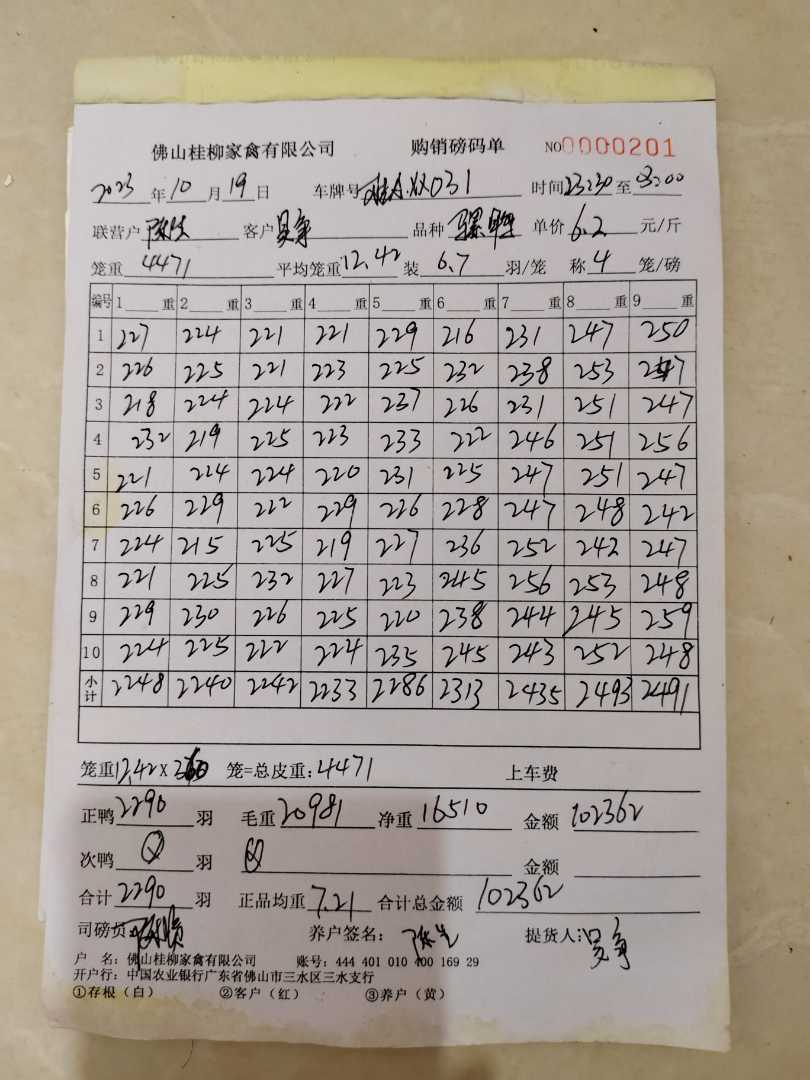 佛山桂柳家禽有限公司 购销磅码单 NO0000201
2023 年 10 月 19 日 车牌号 031 时间 23:30 至 03:00
联营户 客户 吴争 品种 骡鸭 单价 6.2 元/斤
笼重 4471 平均笼重 12.42 装 6.7 羽/笼 称 4 笼/磅
编号 1 重 2 重 3 重 4 重 5 重 6 重 7 重 8 重 9 重
1 227 224 221 221 229 216 231 247 250
2 226 225 221 223 225 232 238 253 247
3 218 224 224 222 237 226 231 251 247
4 232 219 225 223 233 222 246 251 256
5 221 224 224 220 231 225 247 251 247
6 226 229 222 229 226 228 247 248 242
7 224 215 225 219 227 236 252 242 247
8 221 225 232 227 223 245 256 253 248
9 229 230 226 225 220 238 244 245 259
10 224 225 222 224 235 245 243 252 248
小计 2248 2240 2242 2233 2286 2313 2435 2493 2491
笼重 12.42 x 360 笼=总皮重: 4471 上车费
正鸭 2290 羽 毛重 20981 净重 16510 金额 102362
次鸭 0 羽 0 金额
合计 2290 羽 正品均重 7.21 合计总金额 102362
司磅员: 养户签名: 提货人: 吴争
户 名: 佛山桂柳家禽有限公司 账号: 444 401 010 400 169 29
开户行: 中国农业银行广东省佛山市三水区三水支行
①存根（白） ②客户（红） ③养户（黄）